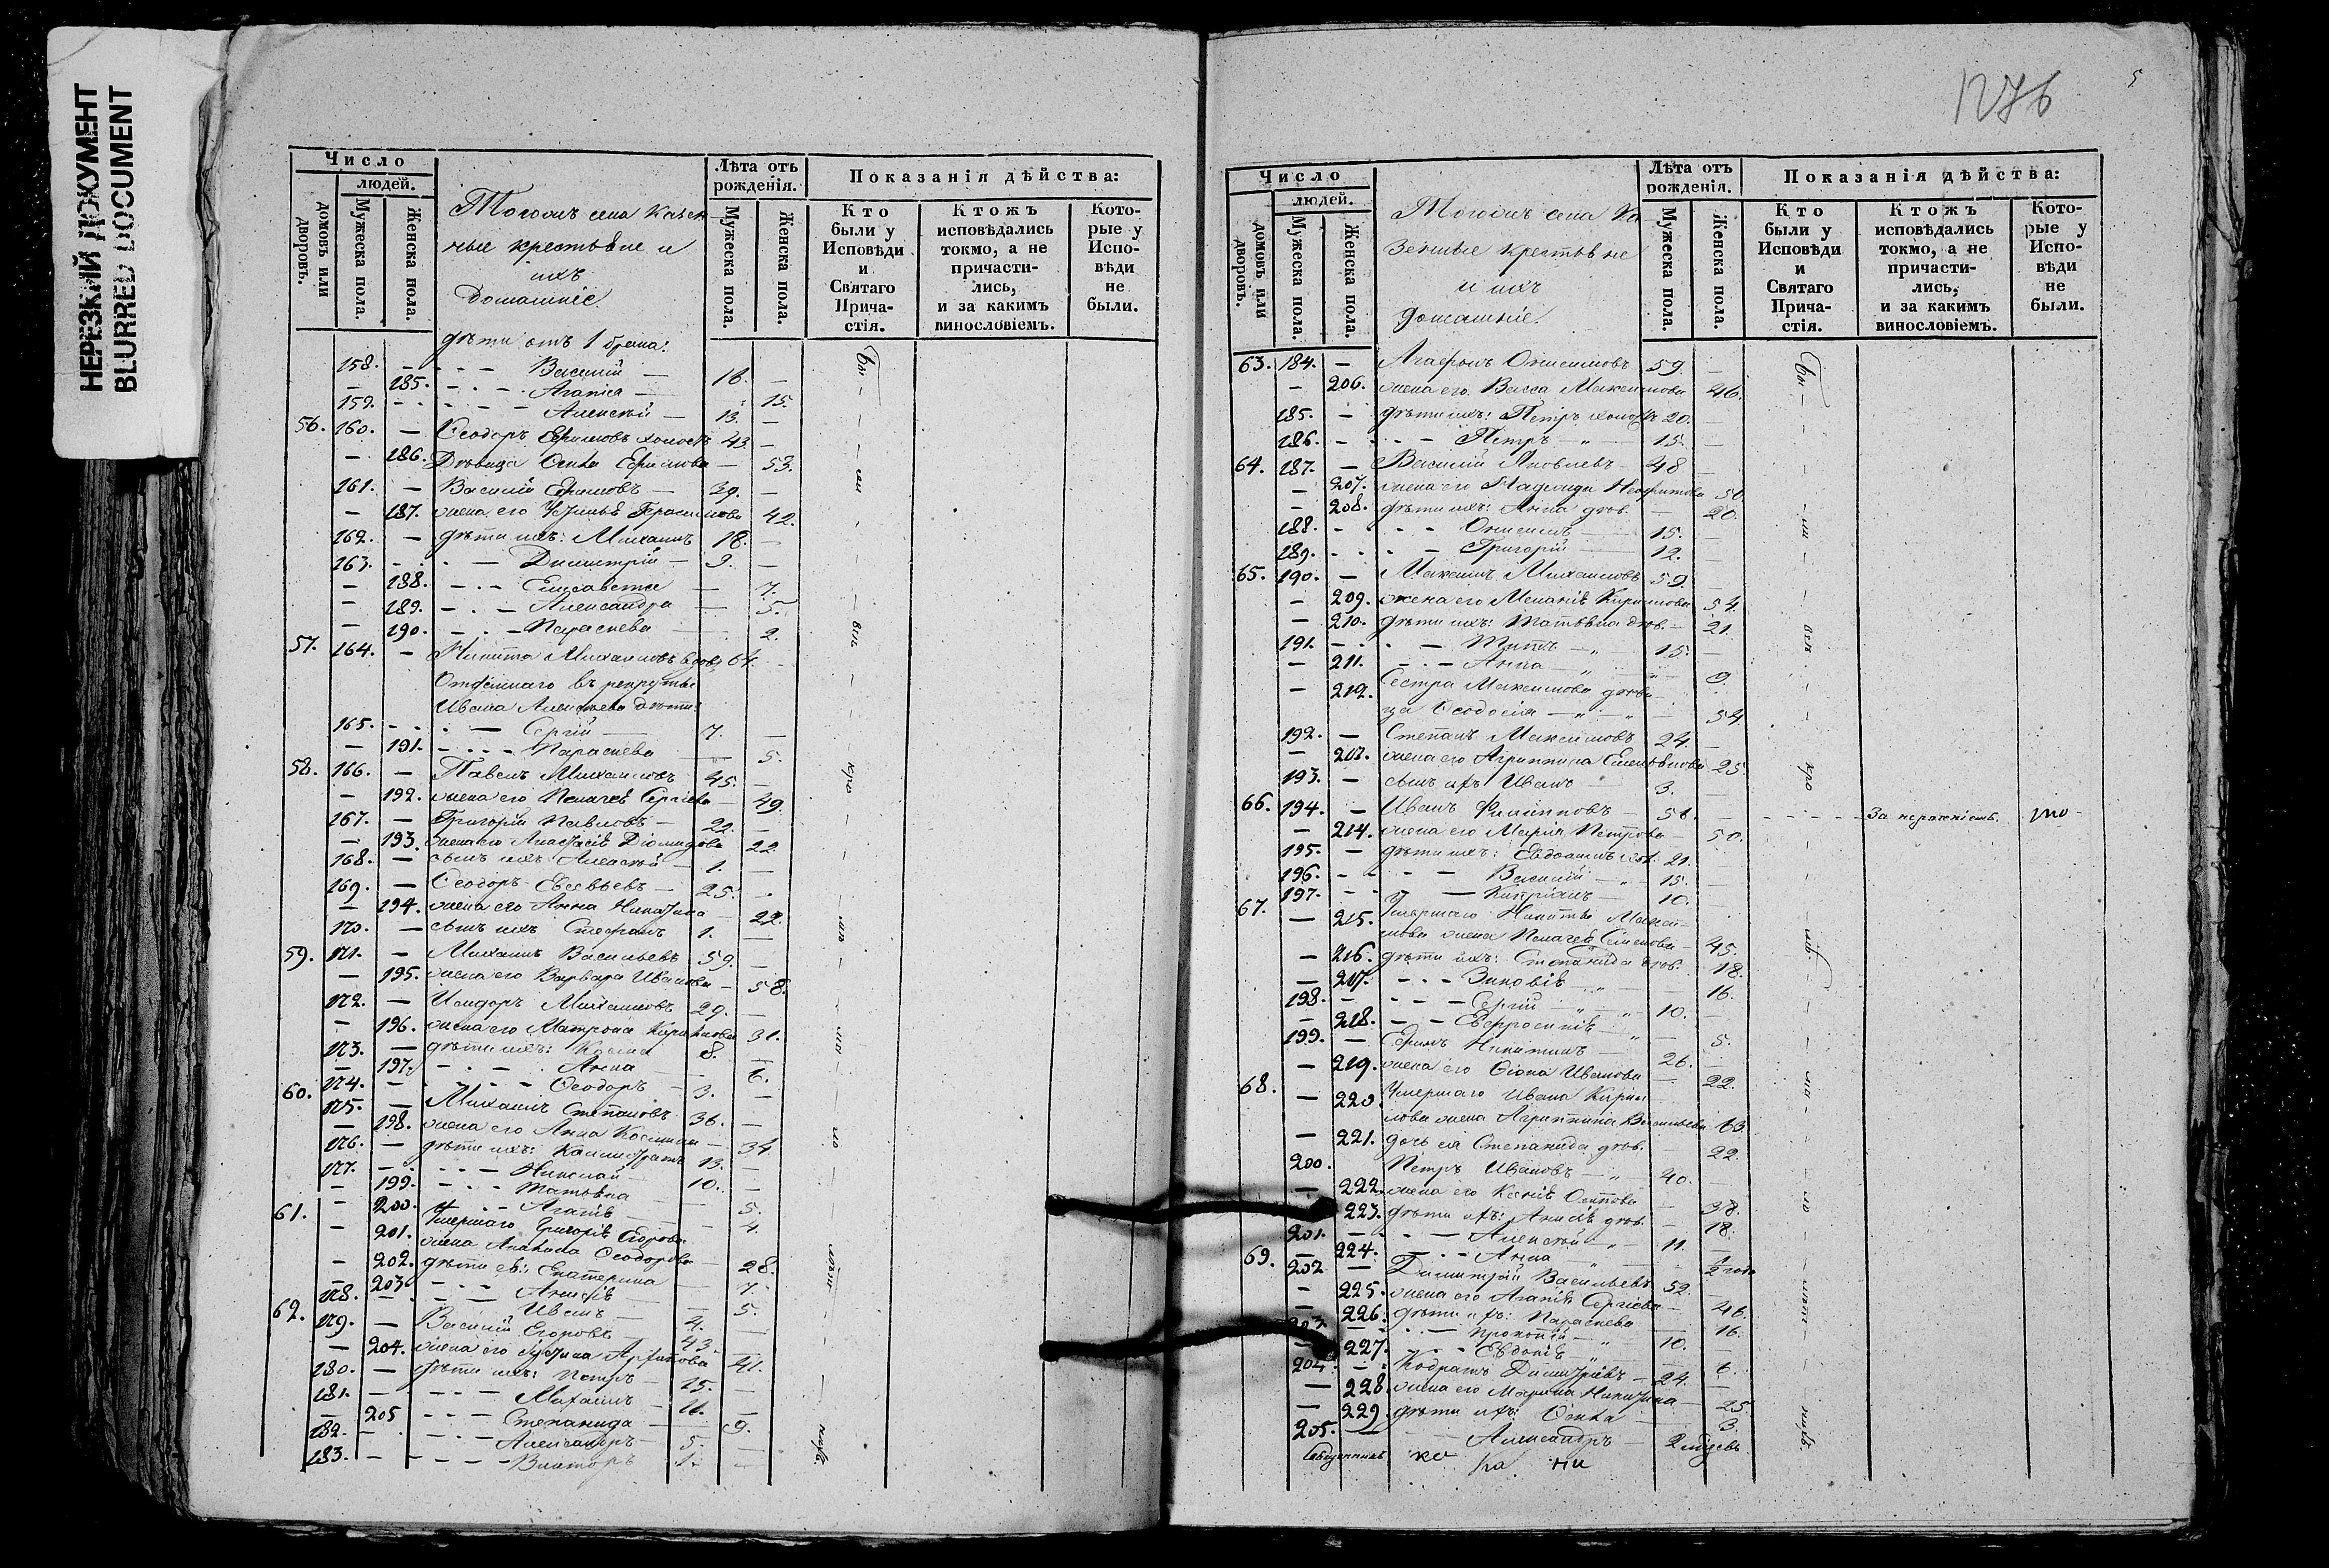 НЕРЕЗКИЙ ДОКУМЕНТ
BLURRED DOCUMENT
Число
людей.
домовъ или дворовъ.
Мужеска пола.
Женска пола.
Тогожъ села Казен
ные крестьяне и
ихъ
домашніе
Лѣта отъ рожденія.
Мужеска пола.
Женска пола.
Показанія дѣйства:
Кто были у Исповѣди и Святаго Прича- стія.
Ктожъ исповѣдались токмо, а не причасти- лись, и за какимъ винословіемъ.
Кото- рые у Испо- вѣди не были.
дѣти отъ 1 брака:
158. – Василій – 16. –
– 185. – Агапія – 15.
159. – Алексѣй – 13. –
56. 160. – Ѳеодоръ Ефимовъ холостъ 43 –
– 186. Дѣвица Ефимова – 53.
161. – Василій Ефимовъ – 39. –
– 187. жена его Герасимова 42.
162. – дѣти ихъ: Михаилъ 18. –
163. – Димитрій – 9. –
– 188. – Елисавета – 7.
– 189. – Александра – 5.
– 190. – Параскева – 2.
57. 164. – Никита Михаиловъ вдовъ 64.
Отданнаго въ рекруты
Ивана дѣти:
165. – Сергій – 7. –
– 191. – Параскева – 5.
58. 166. – Павелъ Михаиловъ 45. –
– 192. жена его Пелагея Сергіева – 49.
167. – Григорій Павловъ – 22. –
– 193. жена его Анастасія Діомидова 22.
168. – сынъ ихъ Алексѣй – 1. –
169. – Ѳеодоръ Евсевьевъ – 25. –
– 194. жена его Анна Никитина – 22.
170. – сынъ ихъ Стефанъ 1. –
59. 171. – Михаилъ Васильевъ 59. –
– 195. жена его Варвара Иванова – 58.
172. – Исидоръ Михаиловъ 29. –
– 196. жена его Матрона 31.
173. – дѣти ихъ: Косма 8. –
– 197. – Анна – 6.
174. – Ѳеодоръ – 3. –
60. 175. – Михаилъ Степановъ 36. –
– 198. жена его Анна Космина – 34
176. – дѣти ихъ: Калистратъ 13. –
177. – Николай 10. –
– 199. – Татьяна – 5.
– 200. – Агапія – 4.
61. – 201. Умершаго Григорія Егорова
жена Ѳеодорова 28.
– 202. дѣти ея: Екатерина – 7.
– 203. – Анисія – 5.
178. – Иванъ – 4. –
62. 179. – Василій Егоровъ 43. –
– 204. жена его 41.
180. – дѣти ихъ: Петръ – 15. –
181. – Михаилъ – 11. –
– 205 – Степанида – 9.
182. – Александръ – 5. –
183. – Викторъ 1. –
1276
5
Число
людей.
домовъ или дворовъ.
Мужеска пола.
Женска пола.
Тогожъ села Ка
зенные крестьяне
и ихъ
домашніе.
Лѣта отъ рожденія.
Мужеска пола.
Женска пола.
Показанія дѣйства:
Кто были у Исповѣди и Святаго Прича- стія.
Ктожъ исповѣдались токмо, а не причасти- лись, и за какимъ винословіемъ.
Кото- рые у Испо- вѣди не были.
63. 184. – Агафонъ Онисимовъ 59. –
– 206. жена его Васса Максимова 46.
185. – дѣти ихъ: Петръ холостъ 20. –
186. – Петръ – 15. –
64. 187. – Василій Яковлевъ – 48 –
– 207. жена его 50
– 208. дѣти ихъ: Анна дѣв. – 20.
188. – Онисимъ – 15. –
189. – Григорій – 12. –
65. 190. – Максимъ Михаиловъ 59. –
– 209. жена его Меланія Кирилова 54.
– 210. дѣти ихъ: Татьяна дѣв. – 21.
191. – Титъ – 15. –
– 211. – Анна – 9.
– 212. Сестра Максимова дѣви
ца Ѳеодосія – 54.
192. – Степанъ Максимовъ 24. –
– 213. жена его Агриппина 25.
193. – сынъ ихъ Иванъ – 3. –
66. 194. – Иванъ Филипповъ – 51. – За нераченіемъ.
– 214. жена его Марія Петрова – 50.
195. – дѣти ихъ: Евдокимъ хол. 21. –
196. – Василій – 15. –
197. – Кипріанъ – 10. –
67. – 215. Умершаго Никиты Макси-
мова жена Пелагея Семенова – 45.
– 216. дѣти ихъ: Степанида дѣв. 18.
– 217. – Зиновія – 16.
198. – Сергій – 10. –
– 218. – Евфросинія – 5.
199. – Ефимъ Никитинъ – 26. –
– 219. жена его Иванова – 22.
68. – 220. Умершаго Ивана Кири
лова жена Агриппина Васильева 63
– 221. дочь ея Степанида дѣв. – 22.
200. Петръ Ивановъ – 40. –
– 222. жена его Ксенія – 38.
– 223. дѣти ихъ: Анисія дѣв. – 18.
201. – Алексѣй – 11. –
– 224. – Анна – 1/2 года
69. 202 – Димитрій Васильевъ 52. –
– 225. жена его Агапія Сергіева – 46.
– 226. дѣти ихъ: Параскева – 16.
203. – Прокопій – 10. –
– 227. – Евдокія – 6.
204. – Кодратъ Димитріевъ – 24. –
– 228. жена его Марина Никитина – 25.
– 229. дѣти ихъ: – 3.
205. – Александръ –